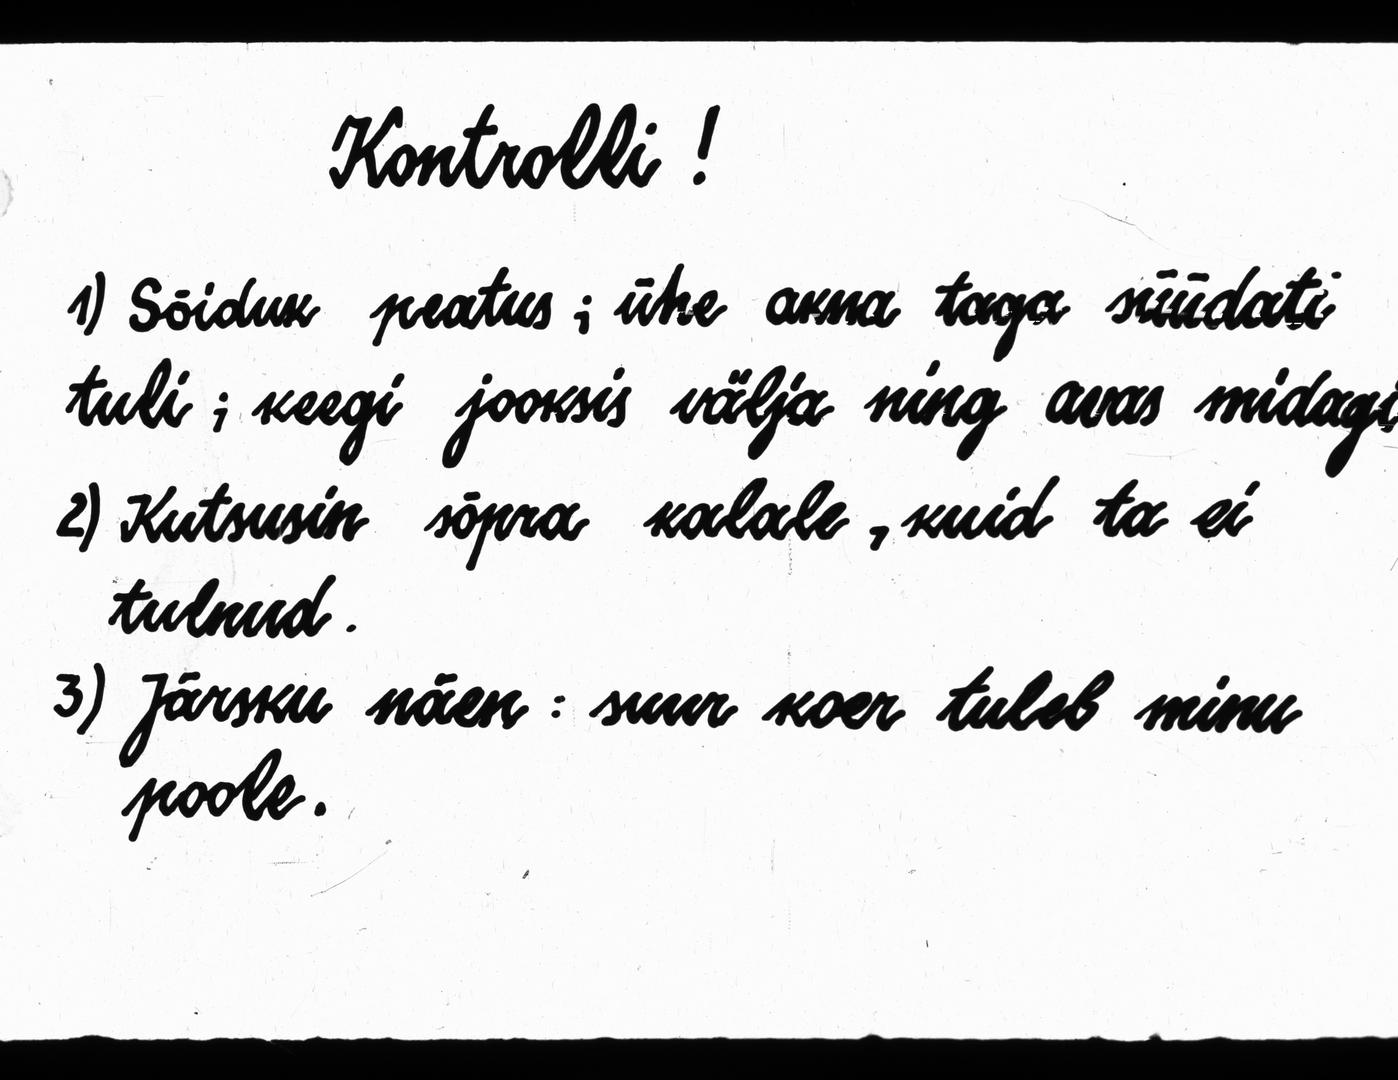 Kontrolli !
1) Sõiduk peatus ; ühe akna taga süüdati
tuli ; keegi jooksis välja ning avas midagi
2) Kutsusin sõpra kalale , kuid ta ei
tulnud .
3) Järsku näen : suur koer tuleb minu
poole .